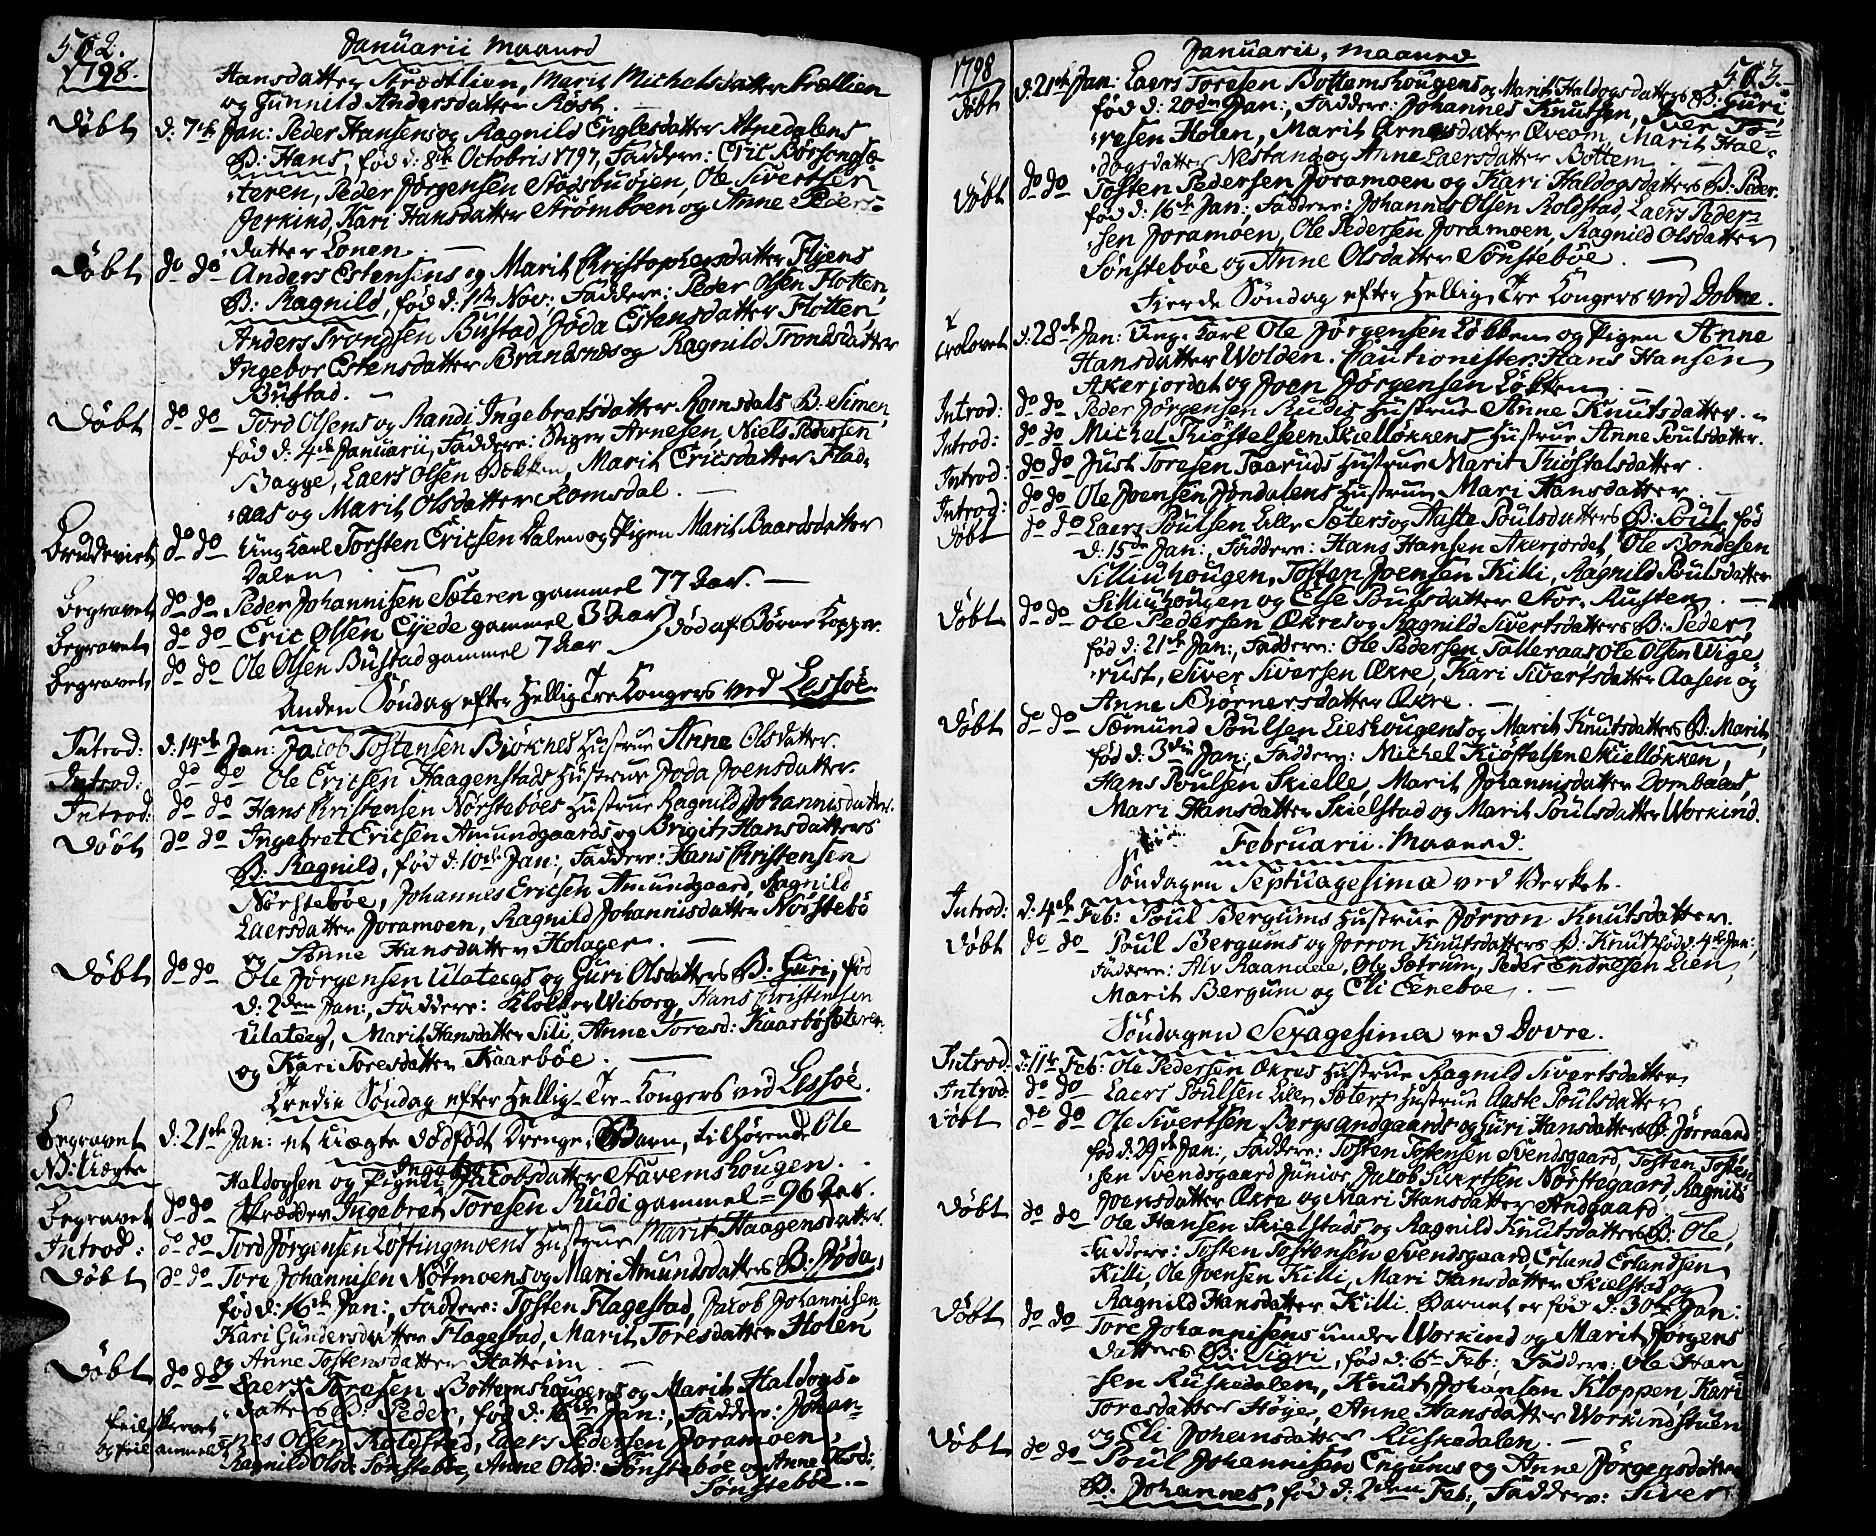 562.
1798.
Januarii Maaned
Hansdatter Strædtlien, Marit Michelsdatter Prællien
og Gunnild Andersdatter Röst.
Döbt d: 7de Jan: Peder Hansens og Ragnild Englesdatter Alpedalens
B: Hans, fød d: 8de Octobris 1797, Faddere: Eric Börsongsæ-
-teren, Peder Jörgensen Stödsbuöien, Ole Sivertsen
Jerkind, Kari Hansdatter Strömboen og Anne Peders-
-datter Lonen.
Döbt do do Anders Estensens og Marit Christophersdatter Flyens
B: Ragnild, fød d: 1ste Nov: Faddere: Peder Olsen Flotten,
Anders Trondsen Bustad, Jöda Estensdatter Flotten,
Ingebor Estensdatter Brandnes og Ragnild Trondsdatter
Bustad.
Döbt do do Tord Olsens og Randi Ingebretsdatter Romsdals B: Simen,
fød d: 4de Januarii, Faddere: Arnesen, Niels Pedersen
Bagge, Laers Olsen Bækken, Marit Ericsdatter Flad-
-aas og Marit Olsdatter Romsdal.
Brudeviet do do Ung Karl Torsten Ericsen Dalen og Pigen Marit Baardsdatter
Dalen
Begravet do do Peder Johannisen Sæteren gammel 77 Aar.
Begravet do do Eric Olsen Eyede gammel 3 Aar
Begravet do do Ole Olsen Bustad gammel 7 Aar } död af Börne Kopper.
Anden Söndag efter Hellig Tre Kongers ved Lessöe.
Introd: d: 14de Jan: Jacob Tostensen Biorknes Hustrue Anne Olsdatter.
Introd: do do Ole Ericsen Haagenstads Hustrue Joda Joensdatter.
Introd: do do Hans Christensen Nörsteböes Hustrue Ragnild Johannisdatter.
Döbt do do Ingebret Ericsen Amundgaards og Brigit Hansdatters
B: Ragnild, fød d: 10de Jan:, Faddere: Hans Christensen
Nørsteböe, Johannes Ericsen Amundgaard, Ragnild
Laersdatter Joramoen, Ragnild Johannisdatter Nörsteböe
og Sönne Hansdatter Holager.
Döbt do do Ole Jörgensen Ulateegs og Guri Olsdatters B: Guri, fød
d: 2den Jan:, Faddere: Klokker Wiborg, Hans Christensen
Ulateeg, Marit Hansdatter Sili, Anne Toresd: Kaarbösæteren
og Kari Toresdatter Kaarböe.
Tredie Söndag efter Hellig-Tre-Kongers ved Lessöe.
Begravet d: 21de Jan: et Uægte dödfödt Drenge-Barn, tilhörende Ole
NB: Uægte
Haldogsen og Pigen Jacobsdatter Stavemshougen.
Begravet do do Skrædder Ingebret Toresen Rudi gammel = 96 Aar.
Introd: do do Tord Jörgensen Löftingmoens Hustrue Marit Haagensdatter
Döbt do do Tore Johannisen Nötmoens og Mari Amundsdatters B: Jöda,
fød d: 16de Jan:, Faddere: Tosten Flagestad, Jacob Johannisen,
Kari Gundersdatter Flagestad, Marit Toresdatter Holen
og Anne Tostensdatter Hatterim.
Döbt do do Laers Toresen Bottemshougens og Marit Haldogs-
-datters B: Peder, fød d: 16de Jan:, Faddere: Johan-
feil skrevet
-nes Olsen Roldstad, Laers Pedersen Joramoen,
og feil anmeldt
Ragnild Olsd: Sönsteböe, Anne Olsd: Sönsteböe og Anne
Sönsteböe.-
1798
Januarii Maaned
563.
Döbt d: 21de Jan: Laers Toresen Bottemshougens og Marit Haldogsdatters B: Guri,
fød d: 20de Jan:, Faddere: Johannes Knutsen, Iver To-
-resen Holen, Marit Arnesdatter Qveom, Marit Hal-
-dogsdatter Nestand og Anne Laersdatter Bottem.
Döbt do do Tosten Pedersen Joramoen og Kari Haldogsdatters B: Peder,
fød d: 16de Jan:, Faddere: Johannes Olsen Roldstad, Laers Peder-
-sen Joramoen, Ole Pedersen Joramoen, Ragnild Olsdatter
Sönsteböe og Anne Olsdatter Sönsteböe.
Fierde Söndag efter Hellig Tre Kongers ved Dovre.
Trolovet d: 28de Jan: Ung Karl Ole Jörgensen Lökken og Pigen Anne
Hansdatter Wolden. Cautionister: Hans Hansen
Akerjordet og Joen Jörgensen Lökken.
Introd: do do Peder Jörgensen Rudis Hustrue Anne Knutsdatter.
Introd: do do Michel Kiöstelsen Skiellökkens Hustrue Anne Poulsdatter.
Introd: do do Just Toresen Taaruds Hustrue Marit Kiöstelsdatter.
Introd: do do Ole Joensen Jöndalens Hustrue Mari Hansdatter.
Döbt do do Laers Poulsen Lille Sæters og Aaste Poulsdatters B: Poul, fød
d: 15de Jan:, Faddere: Hans Hansen Akerjordet, Ole Bondesen
Silliuhougen, Tosten Joensen Killi, Ragnild Poulsdatter
Silliuhougen og Else Poulsdatter Stor-Rusten.
Döbt do do Ole Pedersen Økres og Ragnild Sivertsdatters B: Peder,
fød d: 21de Jan:, Faddere: Ole Pedersen Talleraas, Ole Olsen Wige-
-rust, Siver Siversen Økre, Kari Sivertsdatter Aasen og
Anne Björnersdatter Økre.
Döbt do do Sæmund Poulsen Lieshougens og Marit Knutsdatters B: Marit,
fød d: 3die Jan:, Faddere: Michel Kiöstelsen Skiellökken,
Hans Poulsen Skielle, Marit Johannisdatter Dombaas,
Mari Hansdatter Skielstad og Marit Poulsdatter Workind.
Februarii Maaned:
Söndagen Septuagesima ved Verket.
Introd: d: 4de Feb: Poul Bergums Hustrue Jörron Knutsdatter.
Döbt do do Poul Bergums og Jorron Knutsdatters B: Knut fød d: 4de Jan:,
Faddere: Alv Raanaae, Ole Sætrum, Peder Endresen Lien,
Marit Bergum og Eli Eeneboe.
Söndagen Sexagesima ved Dovre.
Introd: d: 11te Feb: Ole Pedersen Økres Hustrue Ragnild Sivertsdatter
Introd: do do Laers Poulsen Lille Sæters Hustrue Aaste Poulsdatter
Döbt do do Ole Sivertsen Bergsandgaards og Guri Hansdatters B: Jörraand
fød d: 29de Jan:, Faddere: Tosten Tostensen Svendsgaard, Tosten Tosten-
sen Svendsgaard Junior, Jacob Sivertsen Nörstegaard, Ragnild
Joensdatter Økre og Mari Hansdatter Andgaard.
Döbt do do Ole Hansen Skielstads og Ragnild Knutsdatters B: Ole,
Faddere: Tosten Tostensen Svendsgaard, Erland Erlandsen
Killi, Ole Joensen Killi, Mari Hansdatter Skielstad og
Ragnild Hansdatter Killi. Barnet er fød d: 30te Jan:
Döbt do do Tore Johannisens under Workind og Marit Jörgens-
datters B: Sigri, fød d: 6te Feb: Faddere: Ole Han-
-sen Ruskedalen, Knut Johansen Kloppen, Kari
Toresdatter Höye, Anne Hansdatter Workindstuen
og Eli Johansdatter Ruskedalen.
Döbt do do Poul Johannisen Engums og Anne Jörgensdatters
B: Johannes, fød d: 2den Feb:, Faddere: Siver